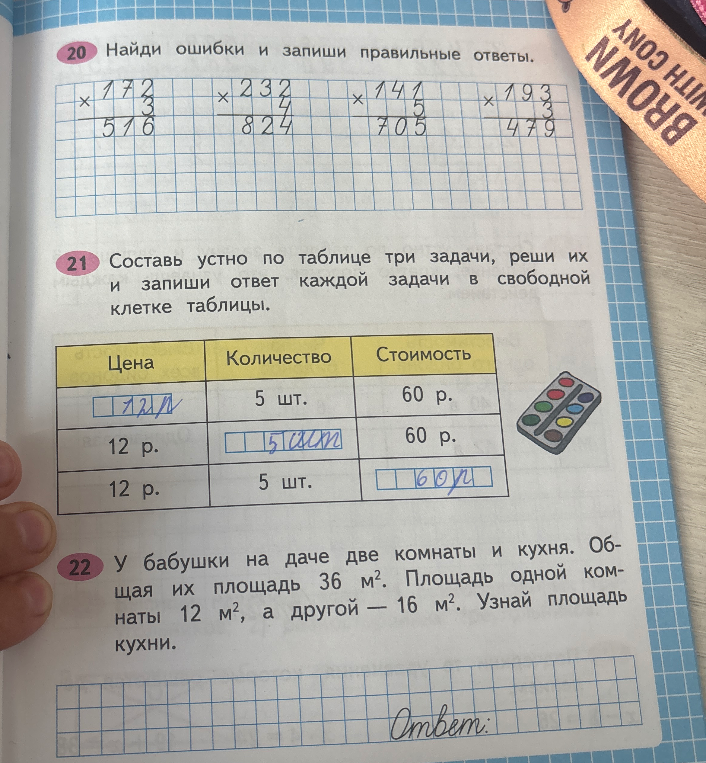 BROWN
WITH CONY
20 Найди ошибки и запиши правильные ответы.
× 172 × 232 × 141 × 193
3 4 5 3
516 824 705 479
21 Составь устно по таблице три задачи, реши их
и запиши ответ каждой задачи в свободной
клетке таблицы.
Цена Количество Стоимость
12р 5 шт. 60 р.
12 р. 5шт 60 р.
12 р. 5 шт. 60р
22 У бабушки на даче две комнаты и кухня. Об-
щая их площадь 36 м². Площадь одной ком-
наты 12 м², а другой — 16 м². Узнай площадь
кухни.
Ответ: